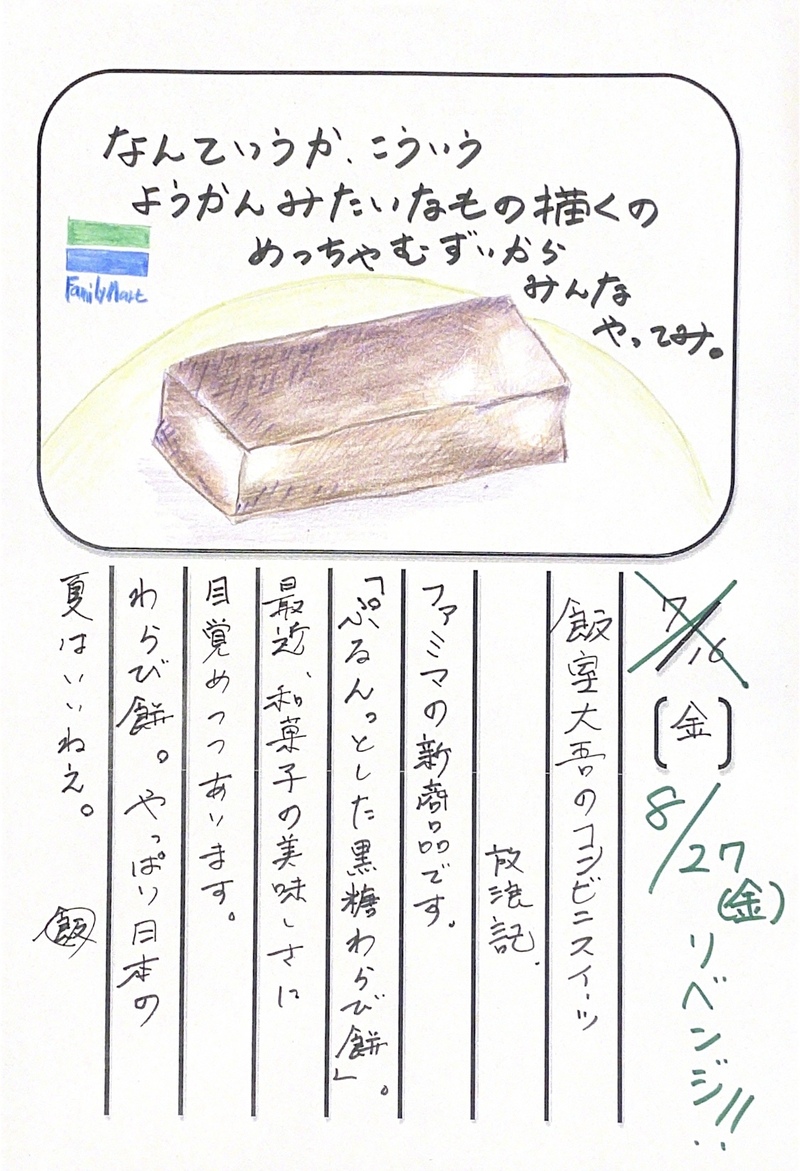 なんていうか、こういう
ようかんみたいなもの描くの
めっちゃむずいから
みんな
やってみ。
FamilyMart
7/16
(金)
8/27
(金)
リベンジ!!
飯室大吾のコンビニスイーツ
放浪記.
ファミマの新商品です。
「ぷるんっとした黒糖わらび餅」。
最近、和菓子の美味しさに
目覚めつつあります。
わらび餅。やっぱり日本の
夏はいいねえ。
飯